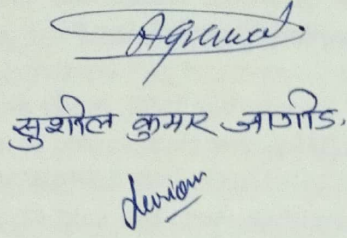 Agrawal
सुशील कुमार जागीड.